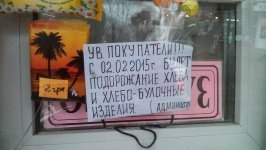 УВ. ПОКУПАТЕЛИ!!!
С 02.02.2015г. БУДЕТ
ПОДОРОЖАНИЕ ХЛЕБА
И ХЛЕБО-БУЛОЧНЫЕ
ИЗДЕЛИЯ
2 грн